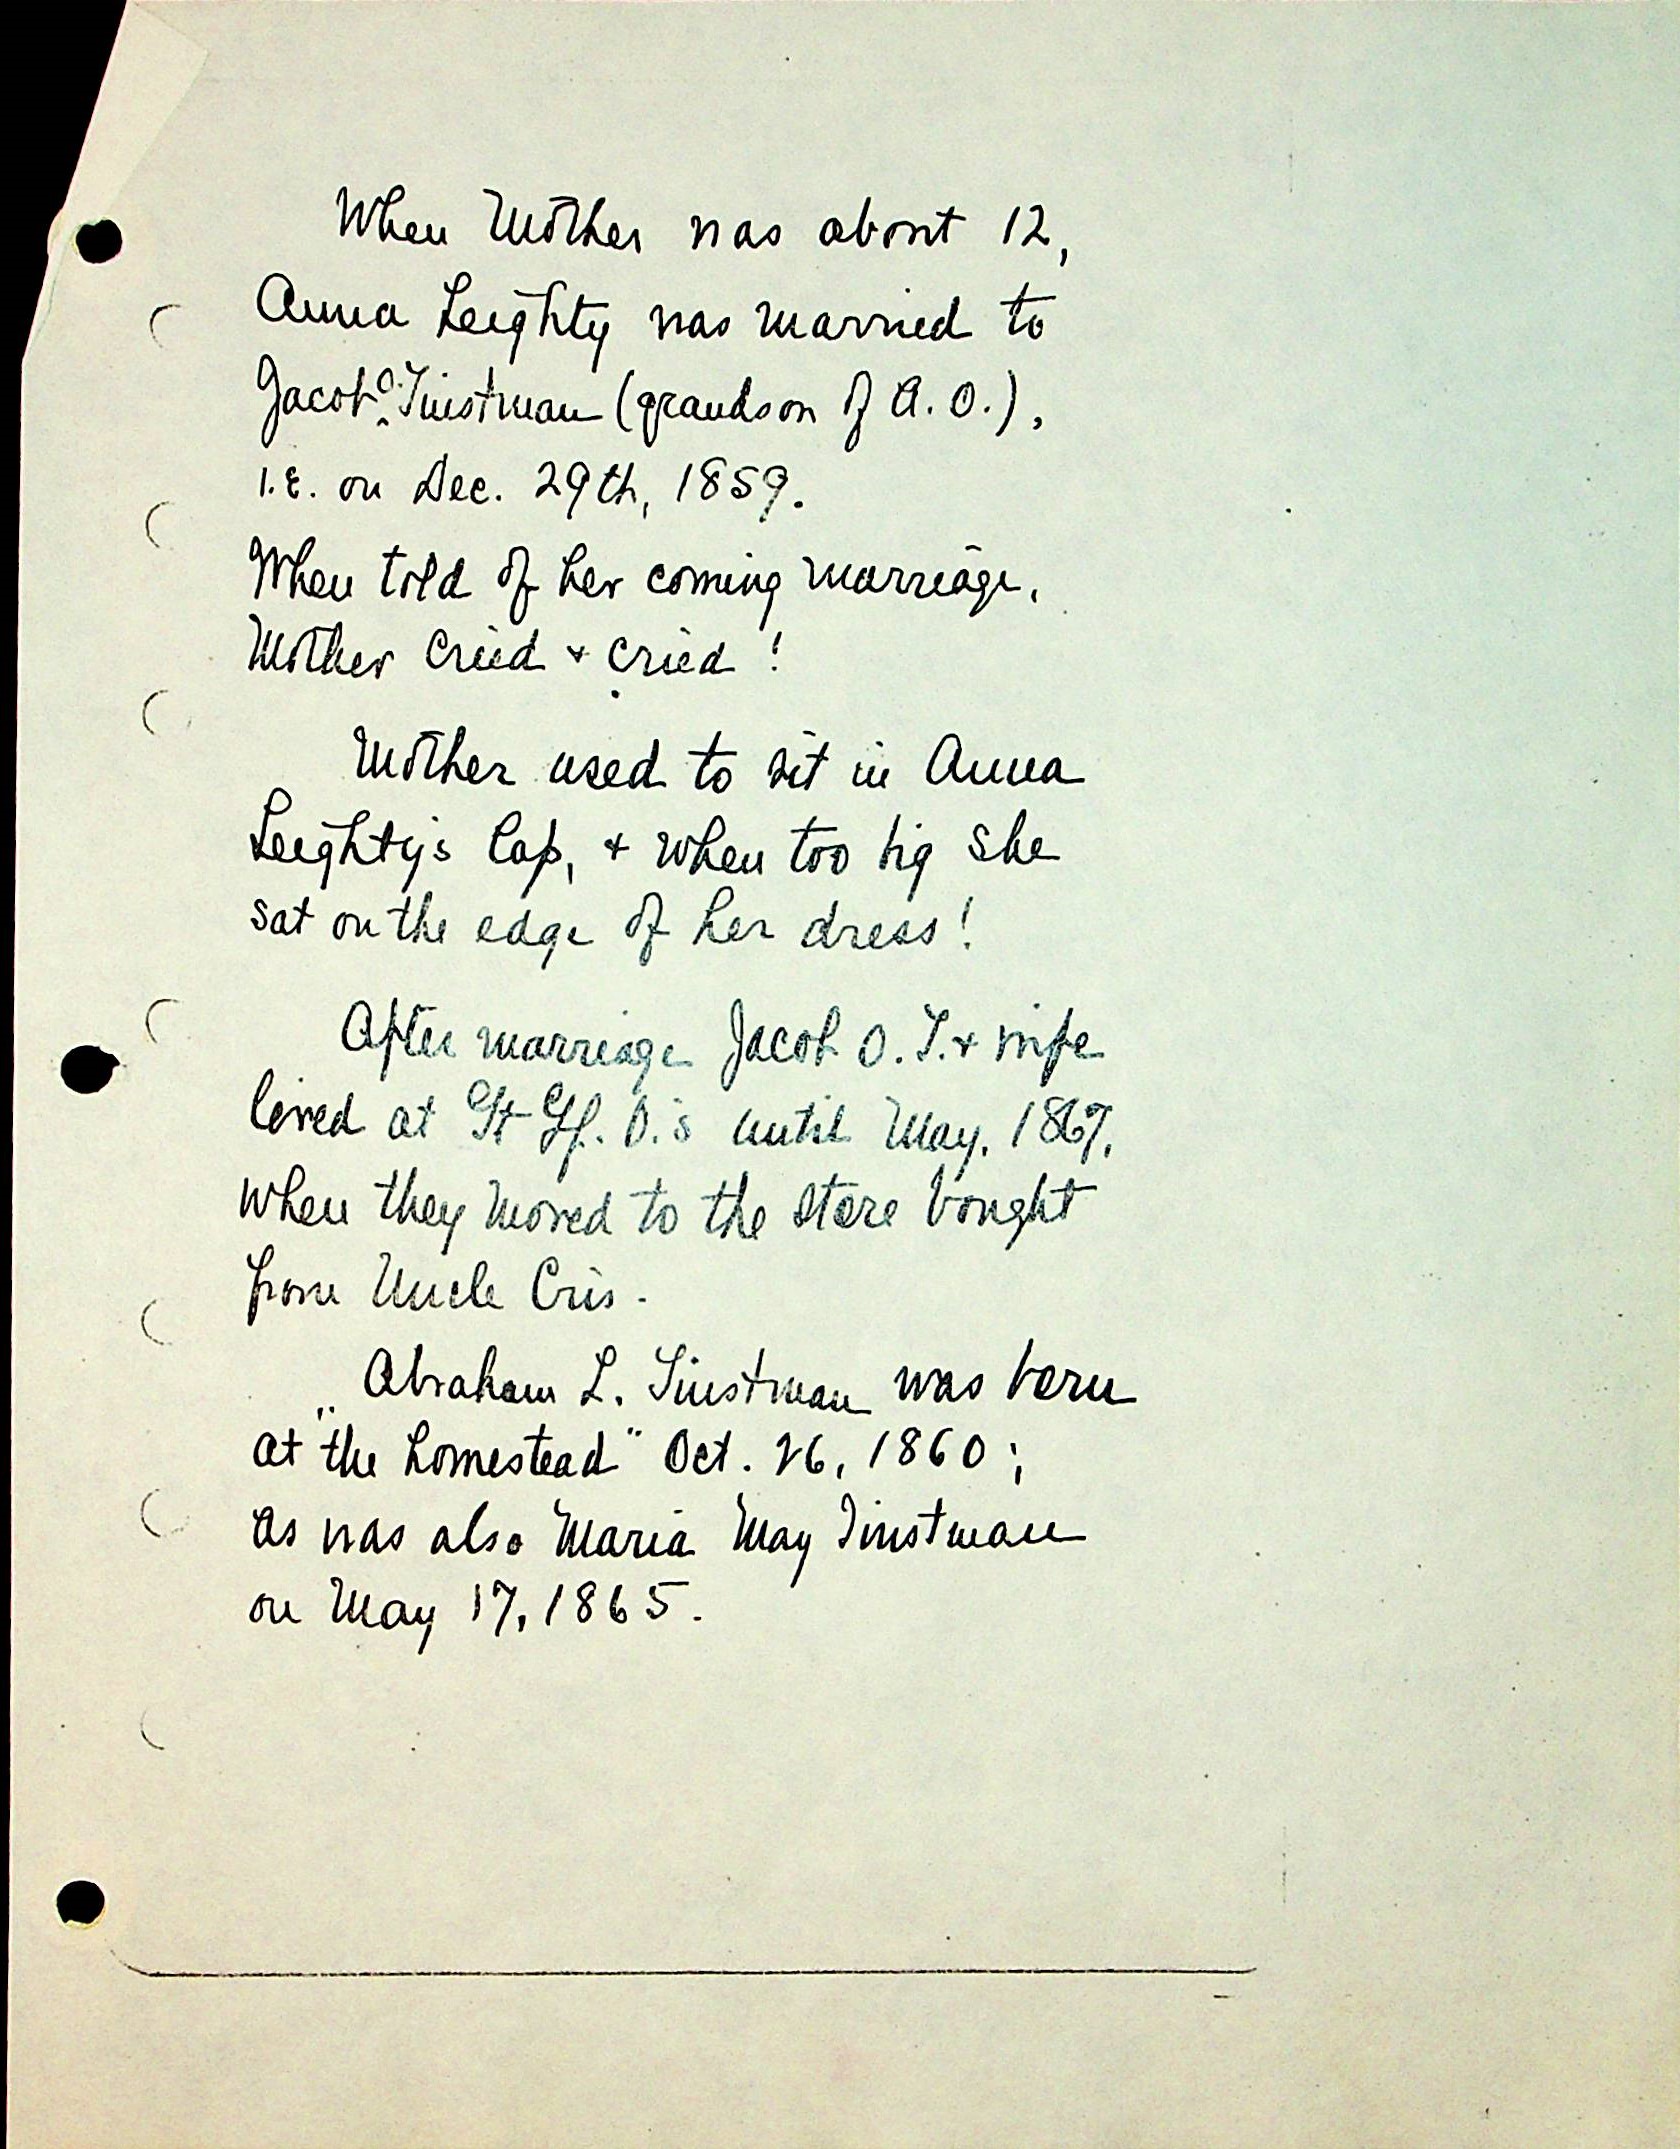 When Mother was about 12,
Anna Leighty was married to
Jacob O. Tinstman (grandson of A. O.),
i.e. on Dec. 29th, 1859.
When told of her coming marriage,
Mother cried + cried!
Mother used to sit in Anna
Leighty's lap, + when too big she
sat on the edge of her dress!
After marriage Jacob O. T. + wife
lived at O.'s until May,
when they moved to the store bought
from Uncle Cris.
Abraham L. Tinstman was born
at "the homestead" Oct. 26, 1860;
as was also Maria May Tinstman
on May 17, 1865.